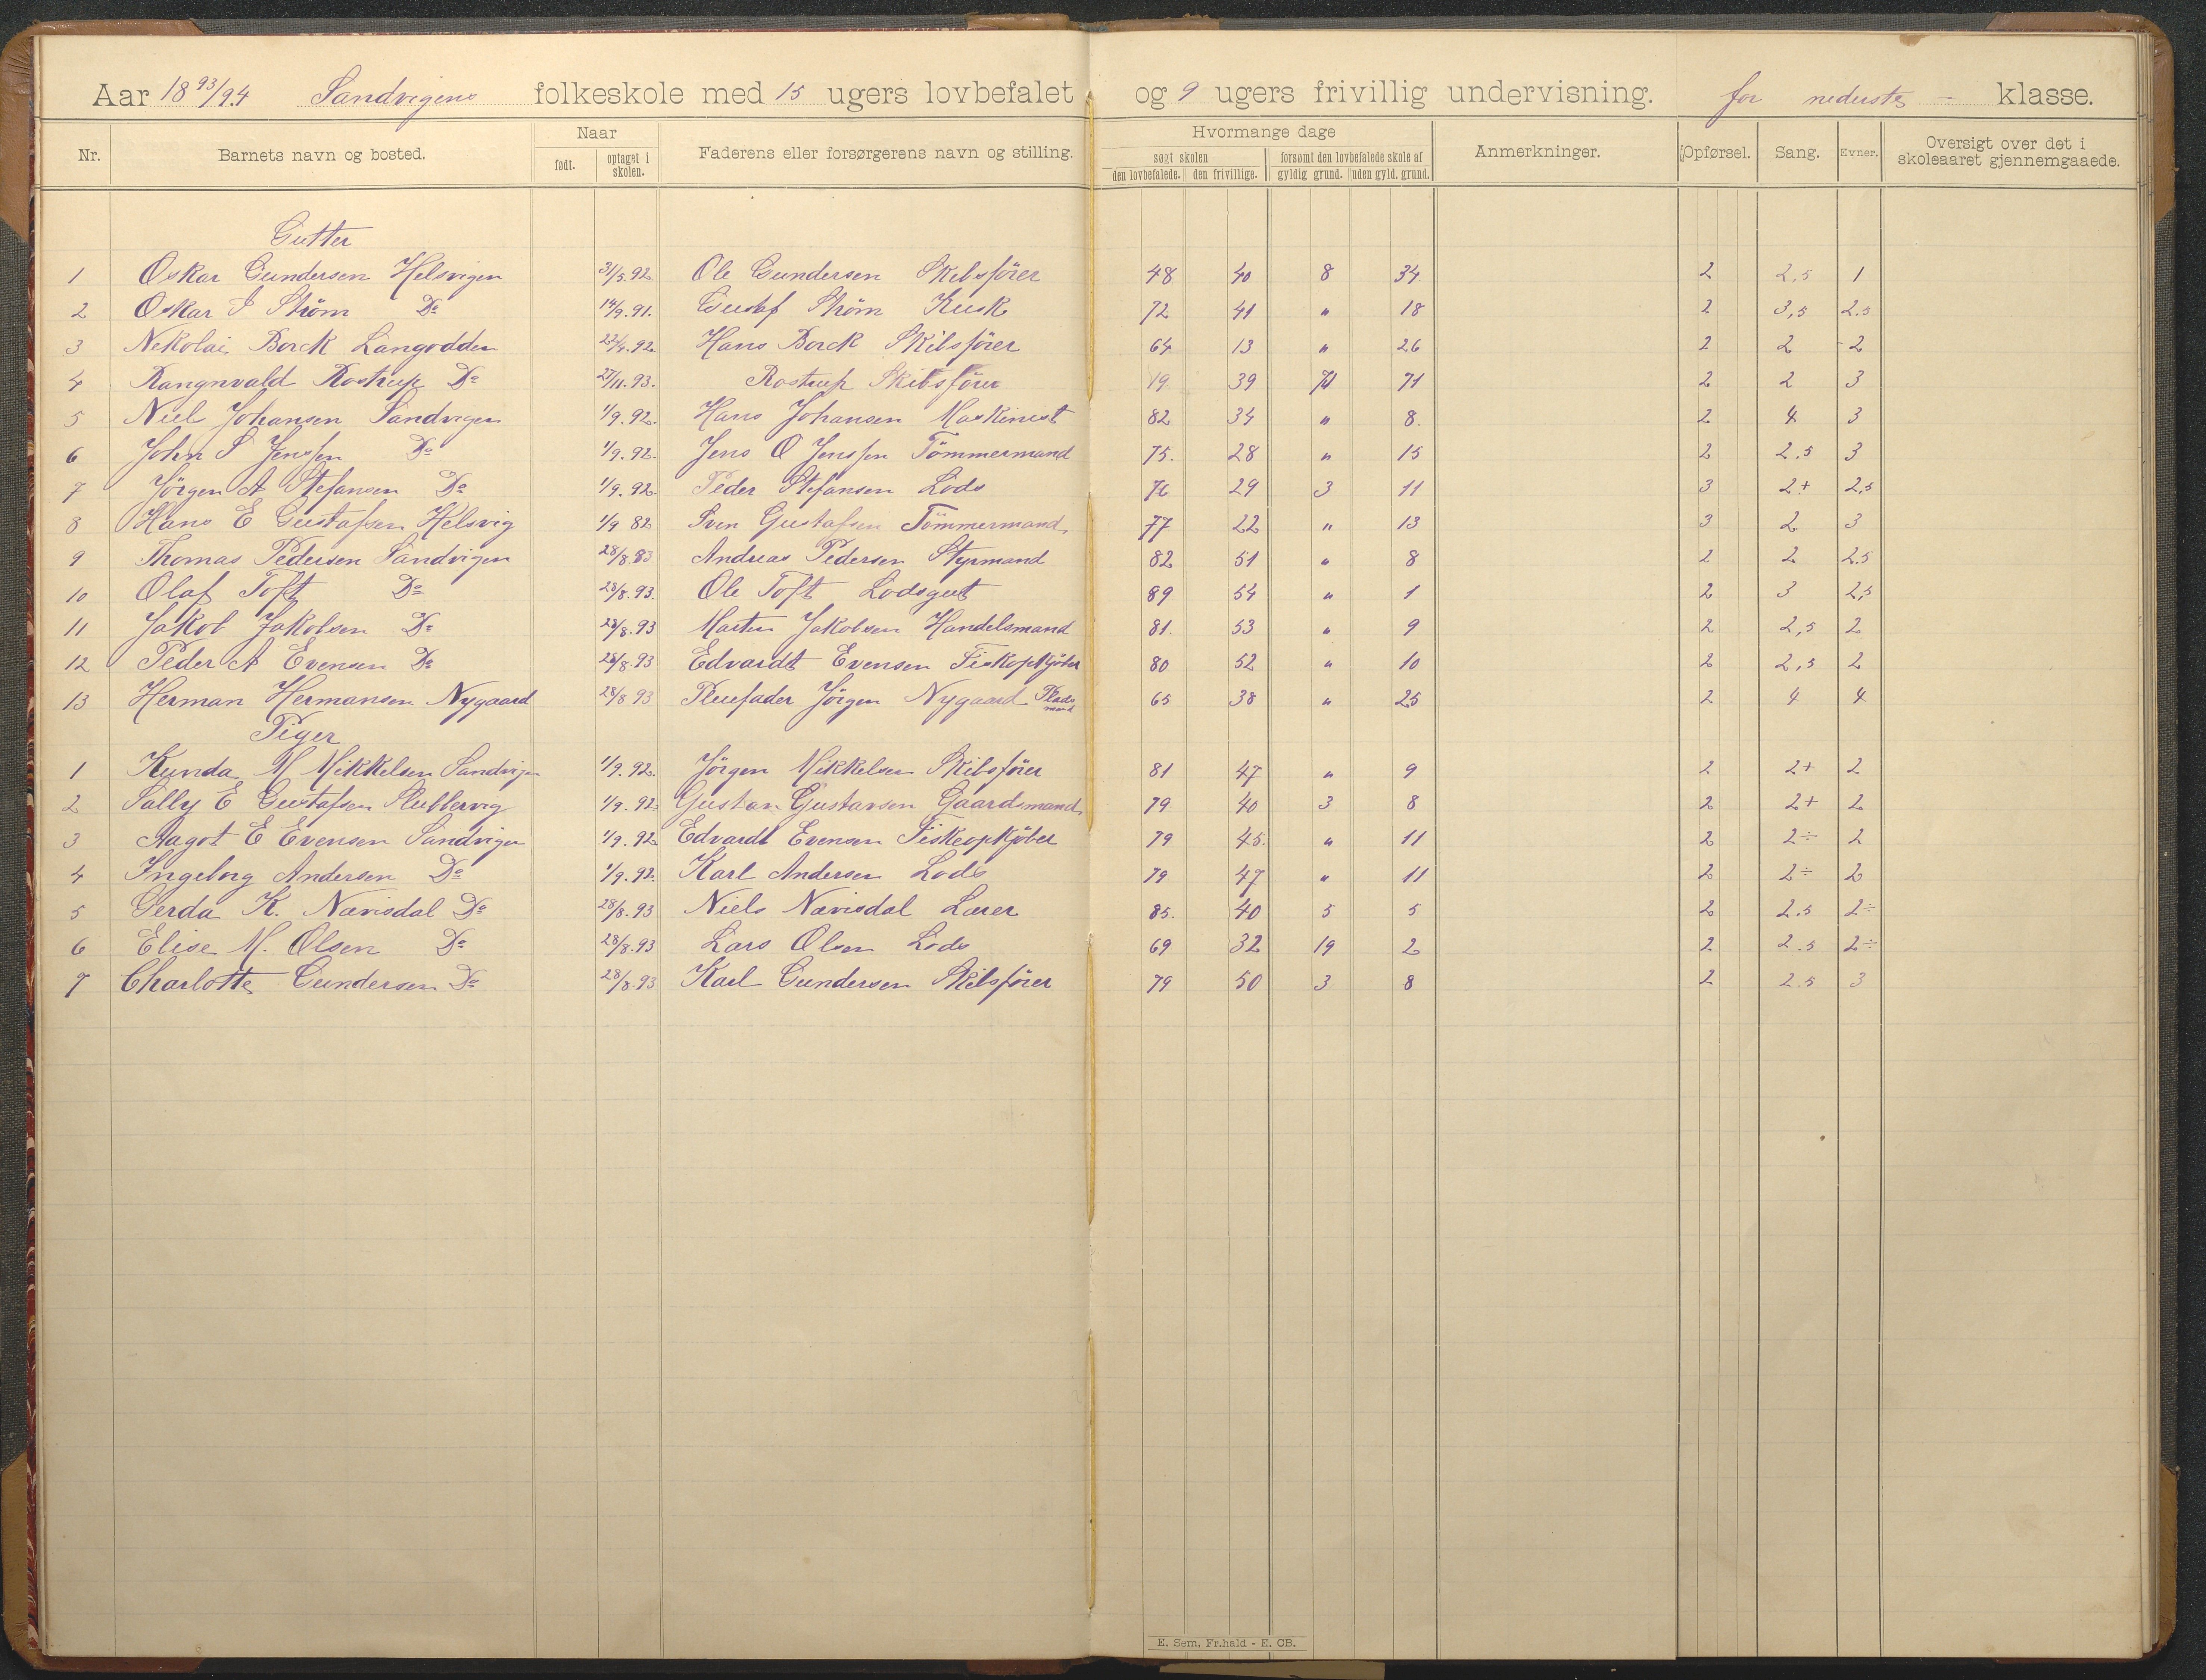 Aar 18 93/94 Sandvigens folkeskole med 15 ugers lovbefalet og 9 ugers frivillig undervisning. for nederste klasse.
Nr. Barnets navn og bosted. Naar Faderens eller forsørgerens navn og stilling. Hvormange dage Anmerkninger. Opførsel. Sang. Evner. Oversigt over det i skoleaaret gjennemgaaede.
født. optaget i skolen. søgt skolen forsømt den lovbefalede skole af
den lovbefalede. den frivillige. gyldig grund. uden gyld. grund.
Gutter
1 Oskar Gundersen Helsvigen 31/5.92 Ole Gundersen Skibsfører 48 40 8 34 2 2,5 1
2 Oskar S Strøm Do 14/9.91. Gustaf Strøm Kusk 72 41 " 18 2 3,5 2.5
3 Nekolai Borck Langodden 22/4.92 Hans Borck Skibsfører 64 13 " 26 2 2 2
4 Rangnvald Rostrup Do 27/11.93. Rostrup Skibsfører 19 39 71 2 2 3
5 Niel Johansen Sandvigen 1/9.92. Hans Johansen Maskinist 82 34 " 8. 2 4 3
6 John S Jenssen Do 1/9.92. Jens O Jenssen Tömmermand 75. 28 " 15 2 2.5 3
7 Jörgen A Stefansen Do 1/9.92. Peder Stefansen Lods 76 29 3 11 3 2+ 2,5
8 Hans E Gustafsen Helsvig 1/9 82 Sven Gustafsen Tömmermand 77 22 " 13 3 2 3
9 Thomas Pedersen Sandvigen 28/8.83 Andreas Pedersen Styrmand 82 51 " 8 2 2 2.5
10 Olaf Toft Do 28/8.93. Ole Toft Lodsgut 89 54 " 1 2 3 2,5
11 Jakob Jakobsen Do 28/8.93 Martin Jakobsen Handelsmand 81. 53 " 9 2 2,5 2
12 Peder A Evensen Do 28/8.93 Edvardt Evensen Fiskopkjöber 80 52 " 10 2 2,5 2
13 Herman Hermansen Nygaard 28/8 93 Pleiefader Jörgen Nygaard Pladsmand 65 38 " 25 2 4 4
Piger
1 Kunda M Mikkelsen Sandvigen 1/9.92. Jörgen Mikkelsen Skibsfører 81 47 " 9 2 2+ 2
2 Sally E Gustafsen Slubbervig 1/9.92 Gustav Gustavsen Gaardsmand 79 40 3 8 2 2+ 2
3 Aagot E Evensen Sandvigen 1/9.92 Edvardt Evensen Fiskeopkjöber 79 45. " 11 2 2÷ 2
4 Ingeborg Andersen Do 1/9.92. Karl Andersen Lods 79 47 " 11 2 2÷ 2
5 Gerda K. Nævisdal Do 28/8.93 Niels Nævisdal Lærer 85. 40 5 5 2 2.5 2÷
6 Elise M. Olsen Do 28/8.93 Lars Olsen Lods 69 32 19 2 2 2.5 2÷
7 Charlotte Gundersen Do 28/8.93 Karl Gundersen Skibsfører 79 50 3 8 2 2.5 3
E. Sem, Fr.hald - E. CB.